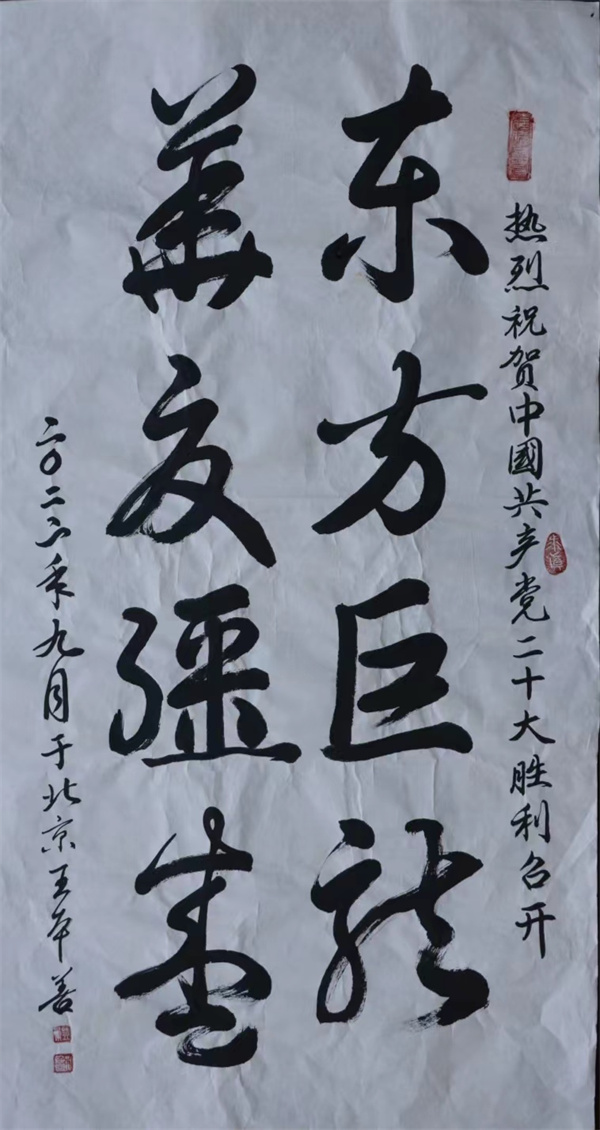 热烈祝贺中國共产党二十大胜利召开
东方巨龍
華夏彊盛
二〇二二年九月于北京王善